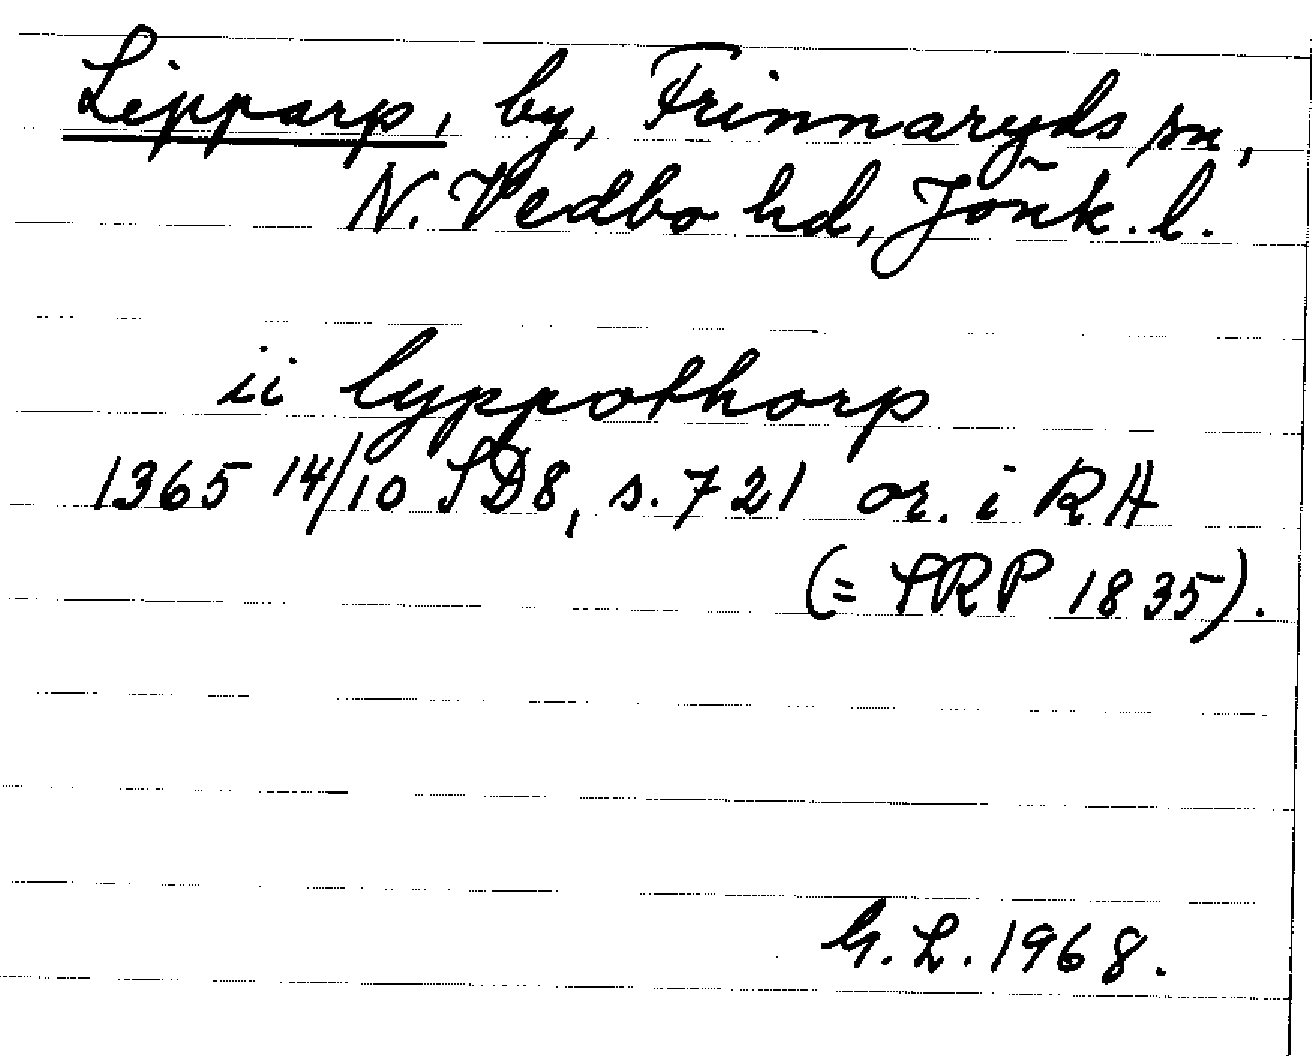 Lipparp, by, Frinnaryds sn,
N. Vedbo hd, Jönk. l.
ii lyppothorp
1365 14/10 SD8, s. 721 or. i RA
(= SRP 1835).
G. L. 1968.